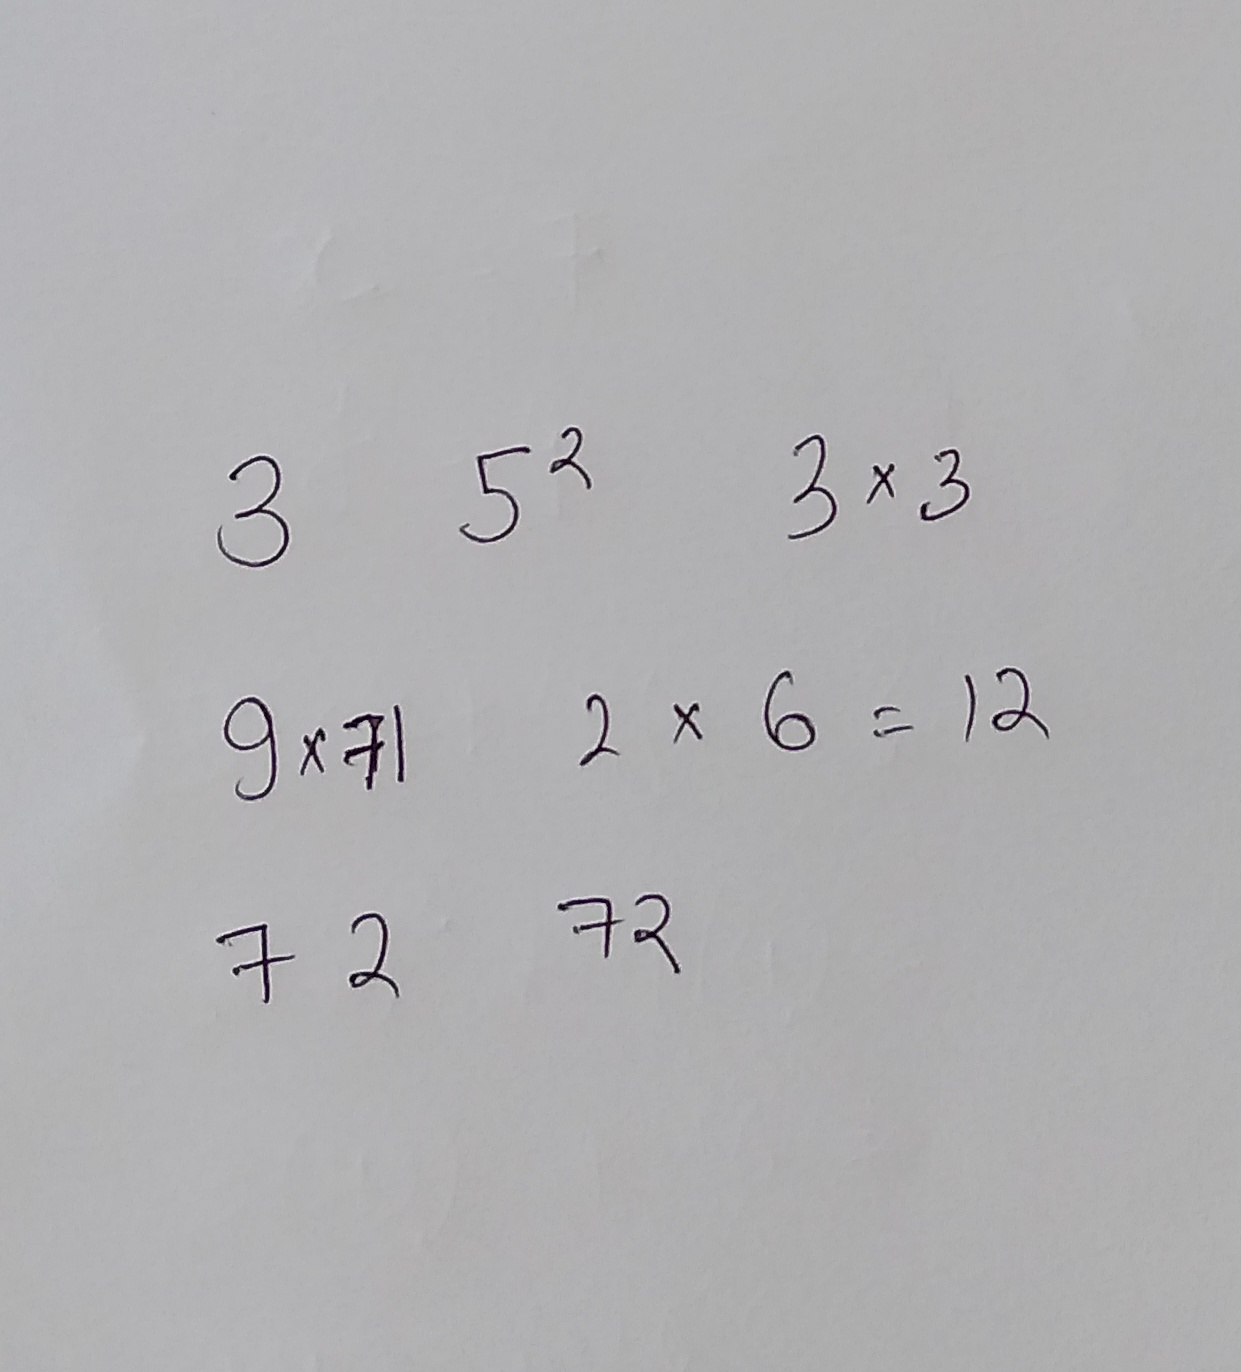 3 5² 3 × 3
9 × 71 2 × 6 = 12
7 2 72